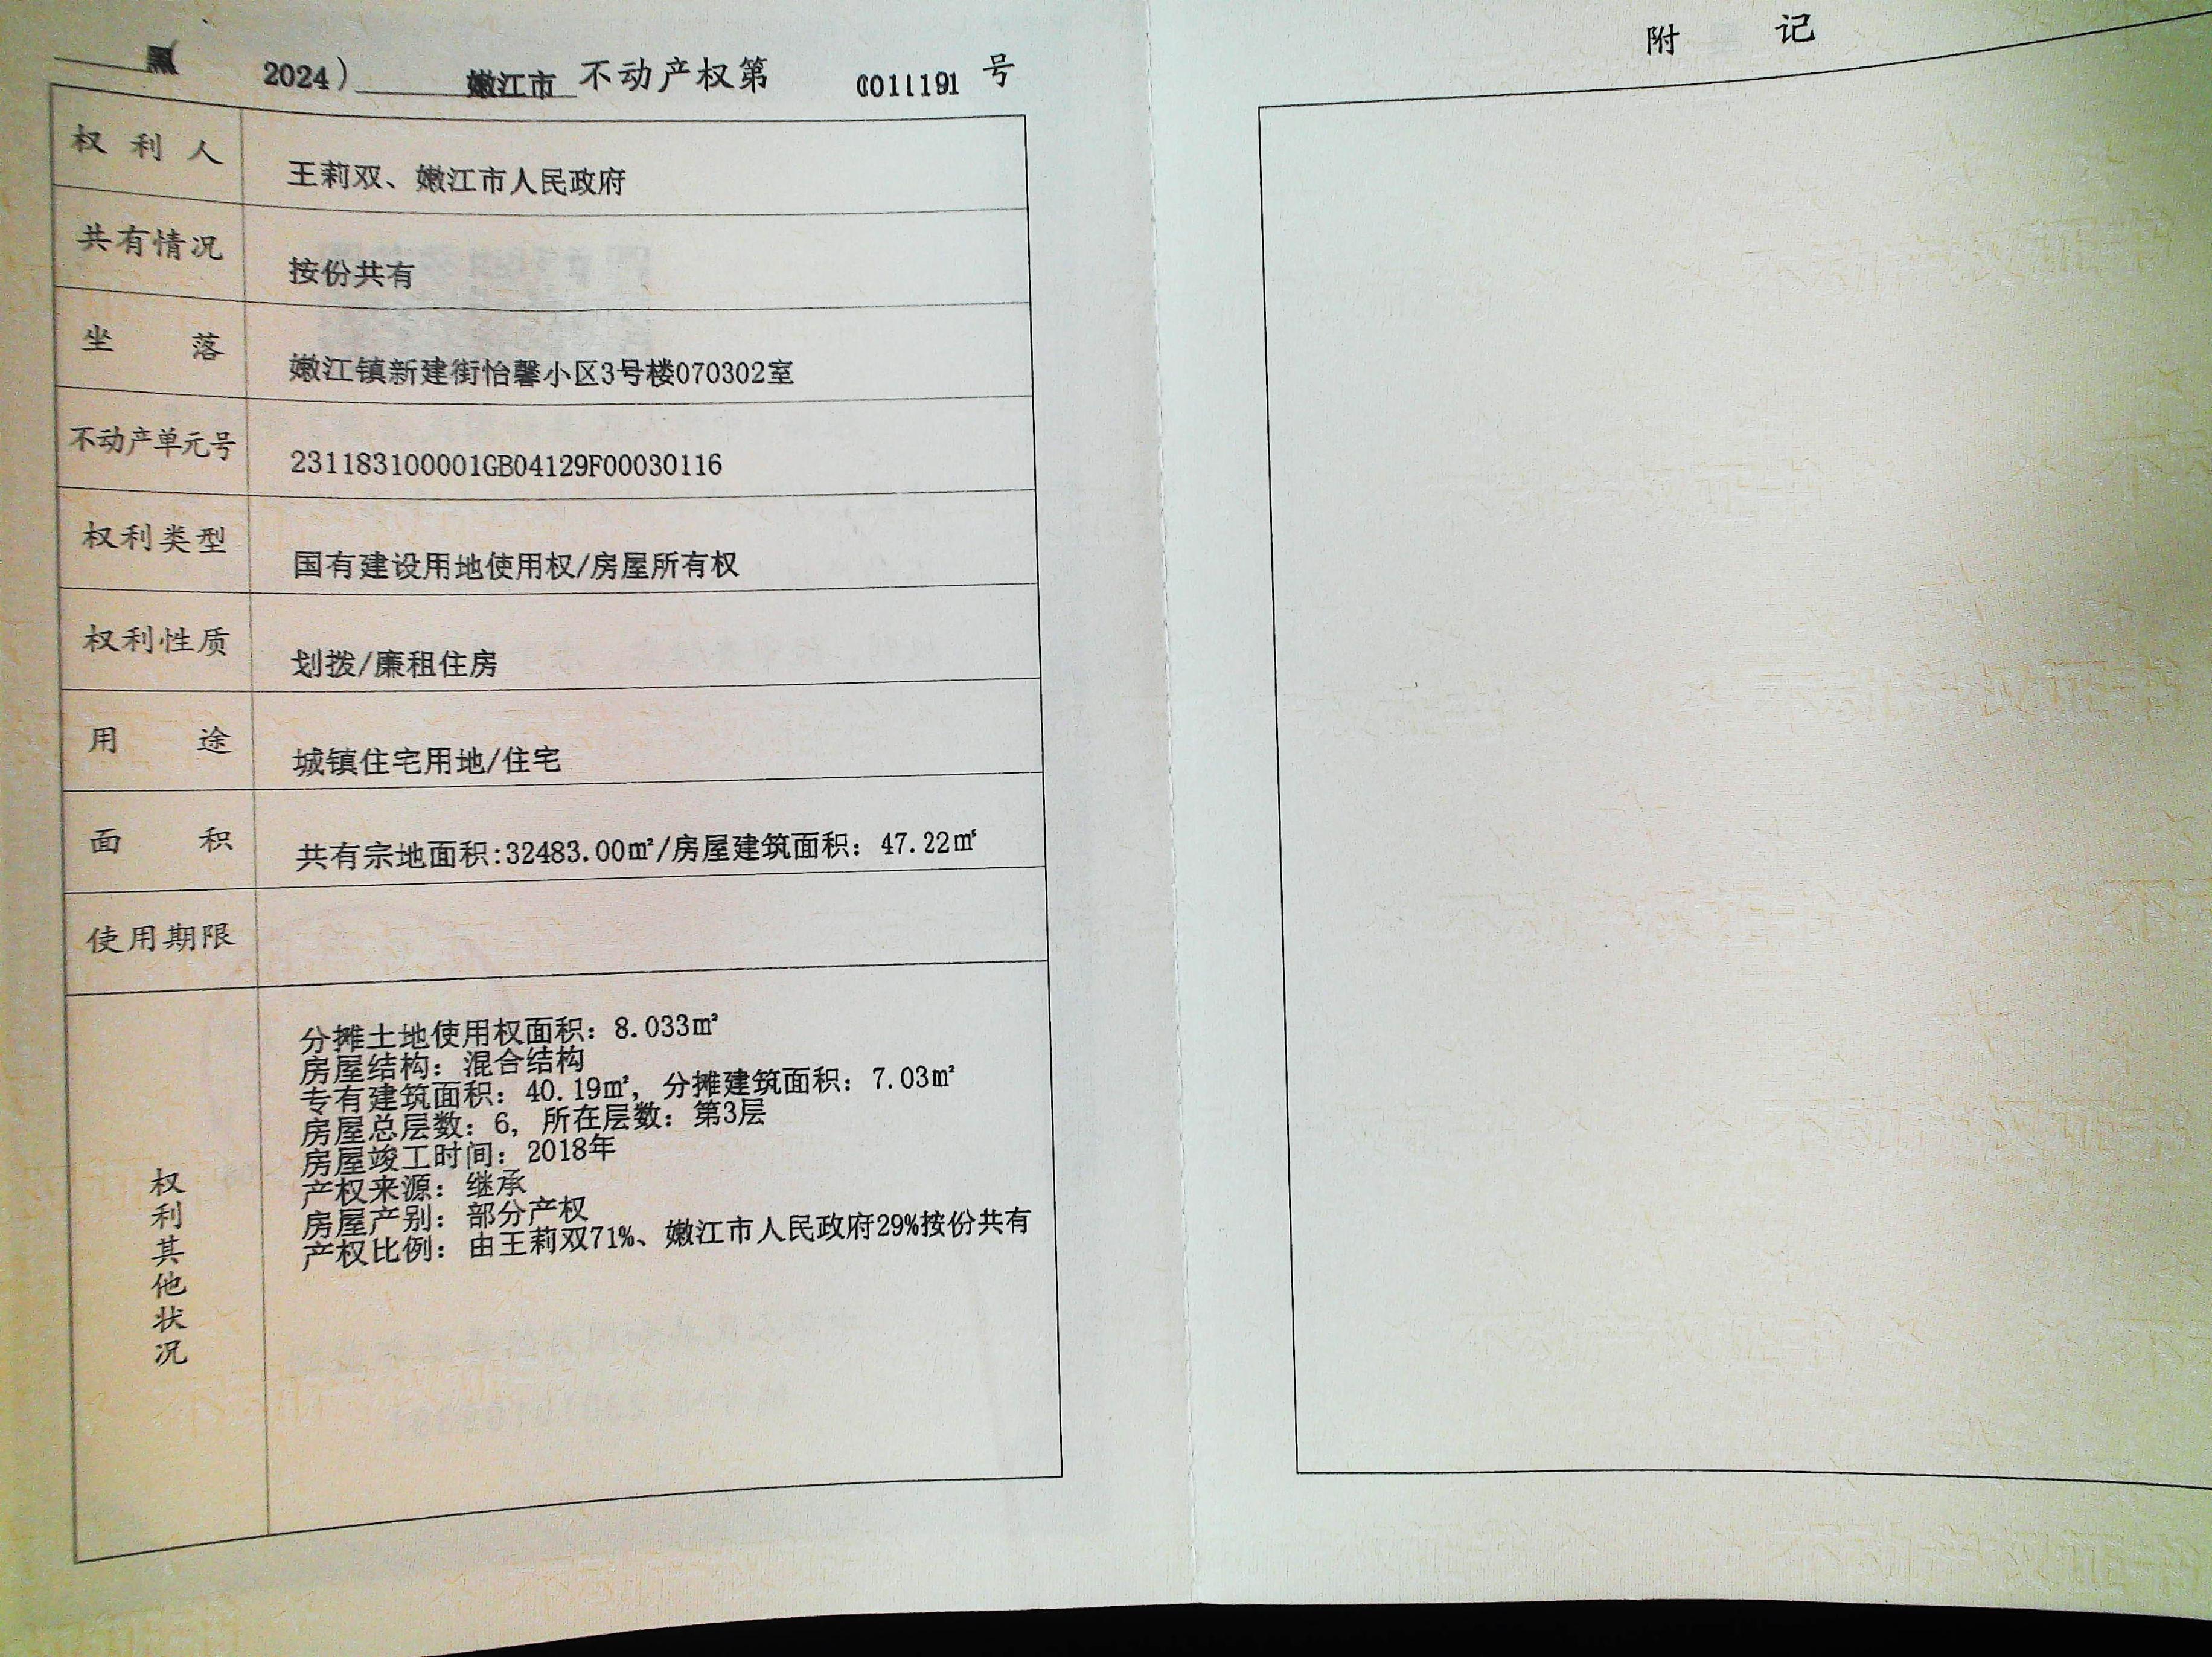 黑 2024) 嫩江市 不动产权第 0011191 号
权利人 王莉双、嫩江市人民政府
共有情况 按份共有
坐落 嫩江镇新建街怡馨小区3号楼070302室
不动产单元号 231183100001GB04129F00030116
权利类型 国有建设用地使用权/房屋所有权
权利性质 划拨/廉租住房
用途 城镇住宅用地/住宅
面积 共有宗地面积:32483.00㎡/房屋建筑面积：47.22㎡
使用期限
权利其他状况
分摊土地使用权面积：8.033㎡
房屋结构：混合结构
专有建筑面积：40.19㎡，分摊建筑面积：7.03㎡
房屋总层数：6，所在层数：第3层
房屋竣工时间：2018年
产权来源：继承
房屋产别：部分产权
产权比例：由王莉双71%、嫩江市人民政府29%按份共有
附记